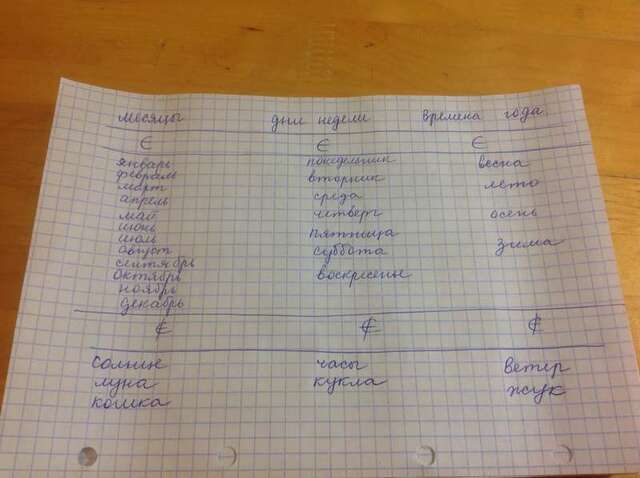 месяцы дни недели времена года
∈ ∈ ∈
январь понедельник весна
февраль вторник
март среда лето
апрель
май четверг осень
июнь
июль пятница
август суббота зима
сентябрь
октябрь воскресенье
ноябрь
декабрь
∉ ∉ ∉
солнце часы ветер
луна кукла жук
кошка